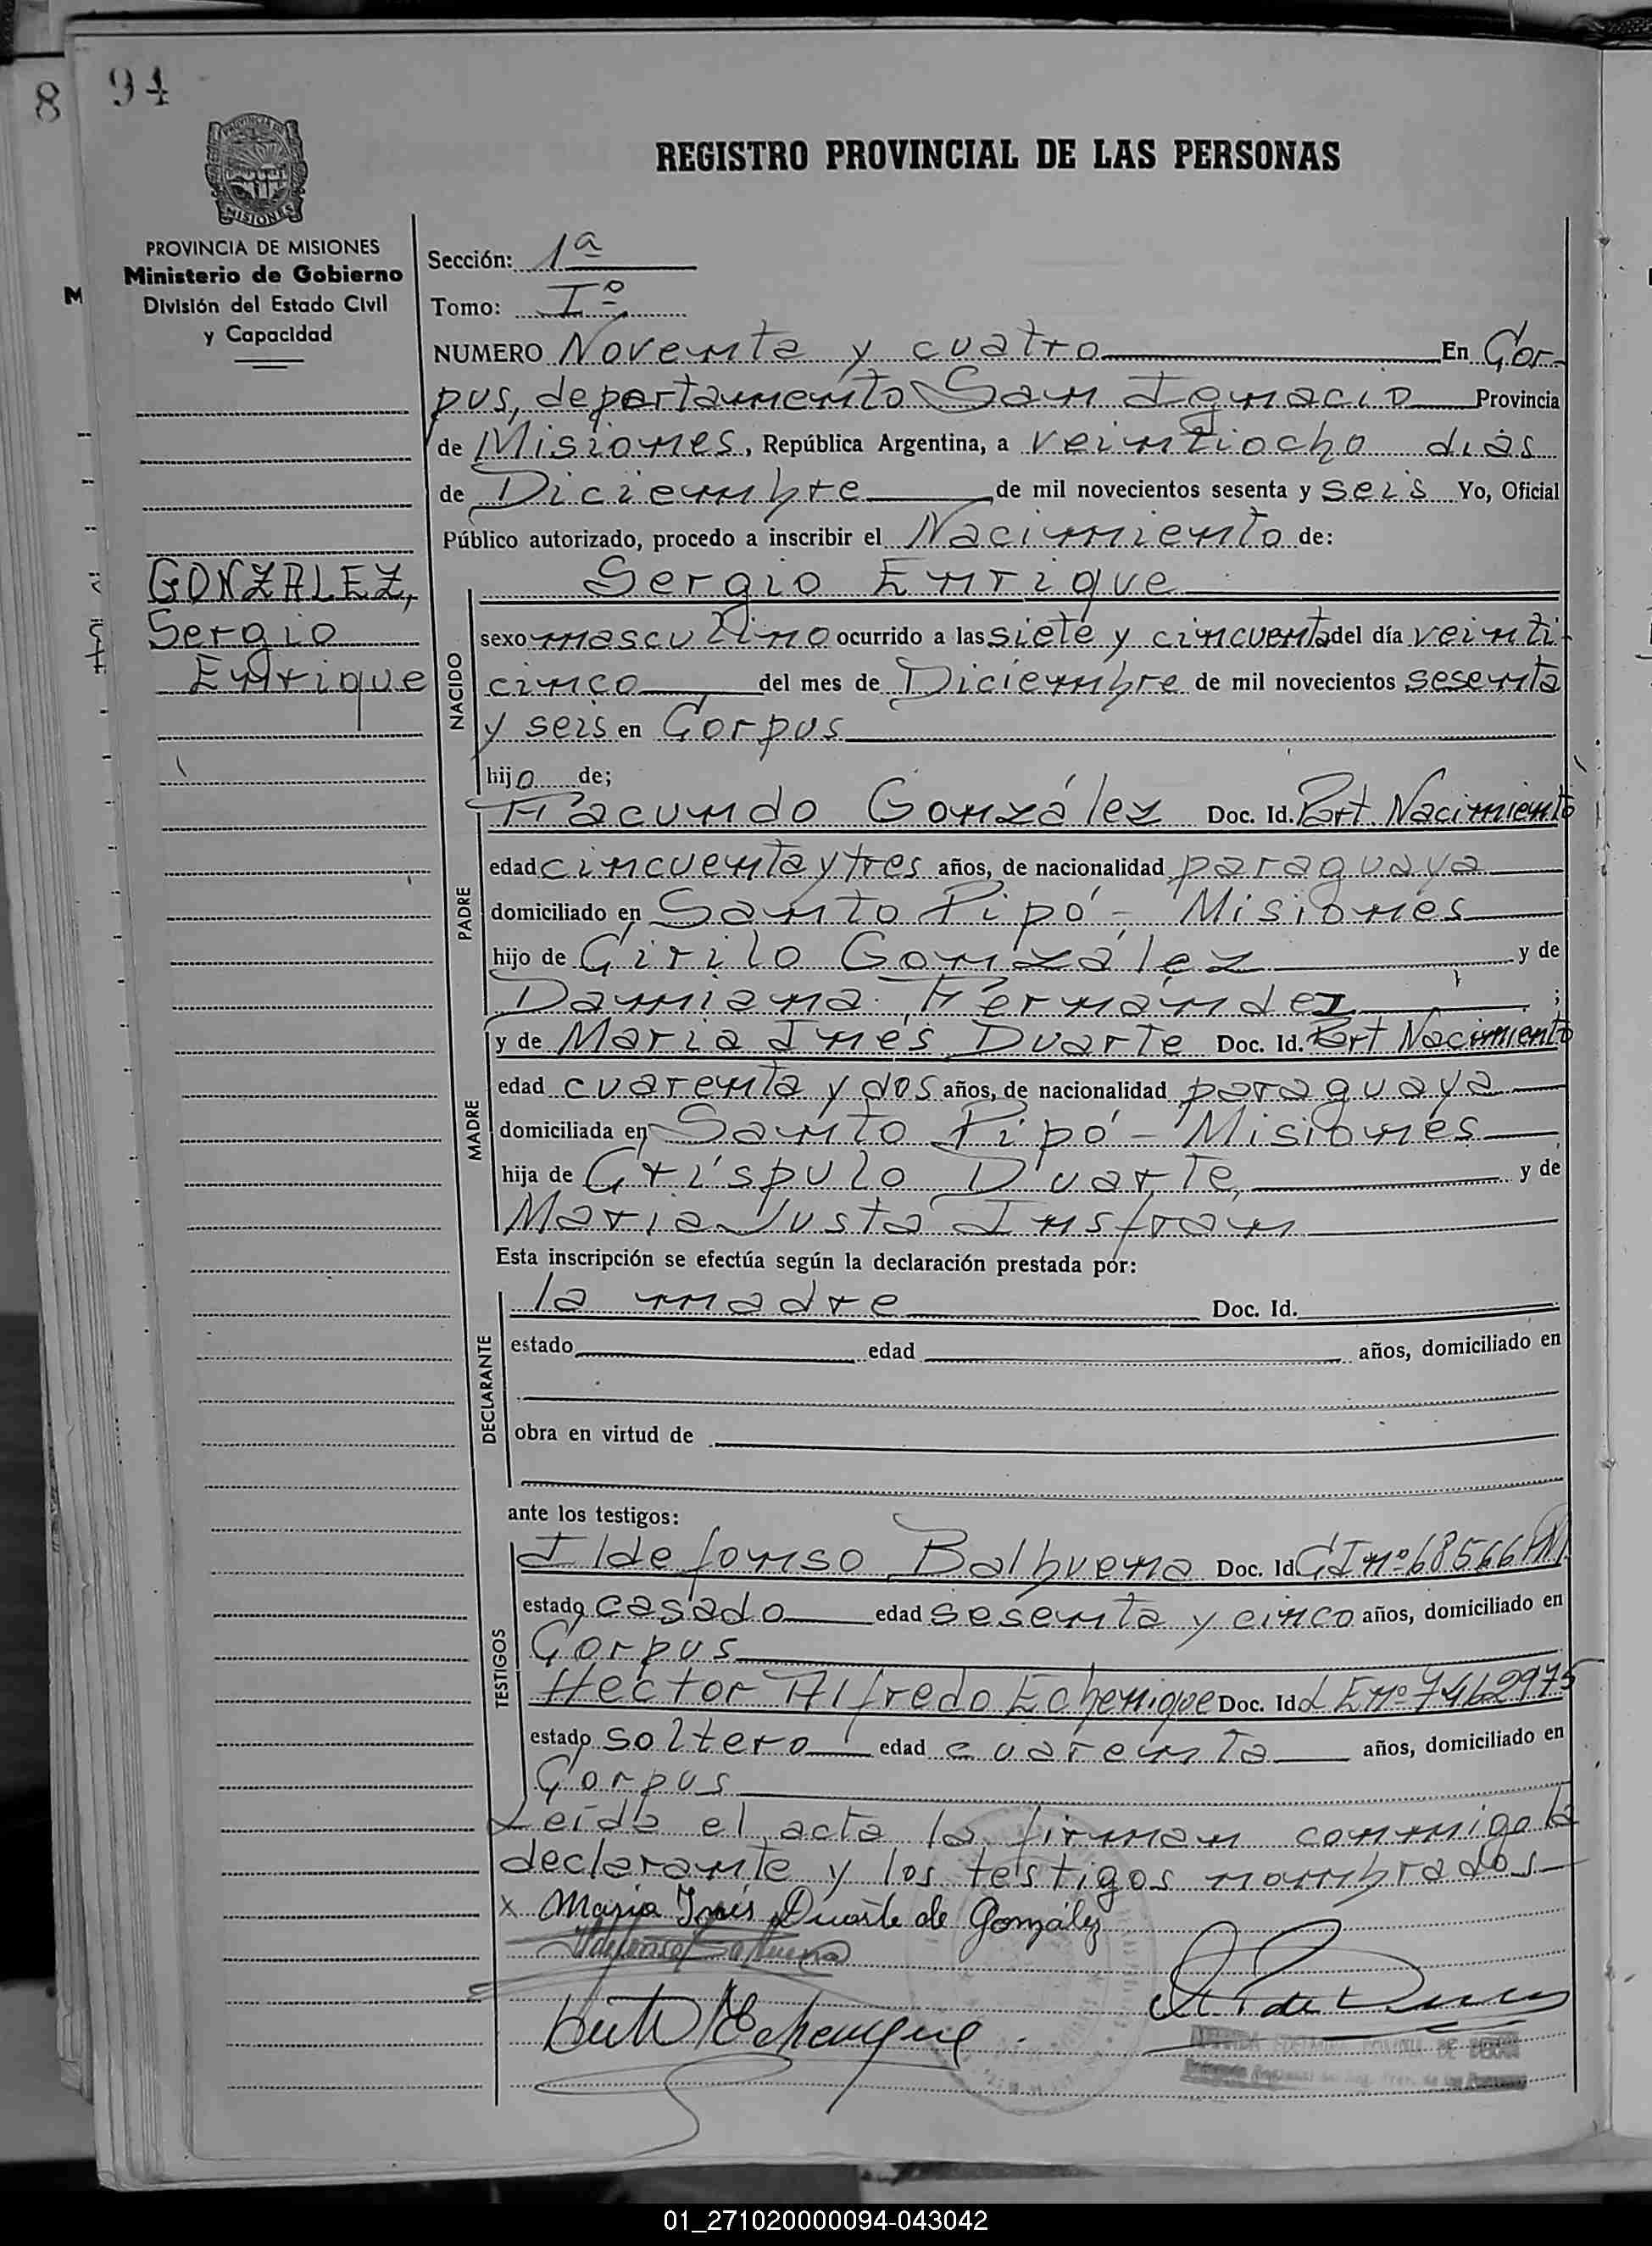 8 94
REGISTRO PROVINCIAL DE LAS PERSONAS
PROVINCIA DE MISIONES
MISIONES
PROVINCIA DE MISIONES
Ministerio de Gobierno
División del Estado Civil
y Capacidad
GONZALEZ,
Sergio
Enrique
Sección: 1ª
Tomo: Iº
NUMERO Noventa y cuatro En Cor-
pus, departamento San Ignacio Provincia
de Misiones, República Argentina, a veintiocho dias
de Diciembre de mil novecientos sesenta y seis Yo, Oficial
Público autorizado, procedo a inscribir el Nacimiento de:
Sergio Enrique
NACIDO
sexo masculino ocurrido a las siete y cincuenta del día veinti
cinco del mes de Diciembre de mil novecientos sesenta
y seis en Corpus
hijo de;
PADRE
Facundo González Doc. Id. Part. Nacimiento
edad cincuenta y tres años, de nacionalidad paraguaya
domiciliado en Santo Pipó - Misiones
hijo de Cirilo González y de
Damiana Fernández ;
MADRE
y de Maria Inés Duarte Doc. Id. Part Nacimiento
edad cuarenta y dos años, de nacionalidad paraguaya
domiciliada en Santo Pipó - Misiones
hija de Críspulo Duarte, y de
Maria Justa Insfran
Esta inscripción se efectúa según la declaración prestada por:
DECLARANTE
la madre Doc. Id.
estado edad años, domiciliado en
obra en virtud de
ante los testigos:
TESTIGOS
Ildefonso Balbuena Doc. Id CI nº 68566
estado casado edad sesenta y cinco años, domiciliado en
Corpus
Hector Alfredo Echenique Doc. Id L E nº 7462975
estado soltero edad cuarenta años, domiciliado en
Corpus
Leída el acta la firman conmigo la
declarante y los testigos nombrados
x Maria Inés Duarte de González
Ildefonso Balbuena
Echenique
01_271020000094-043042